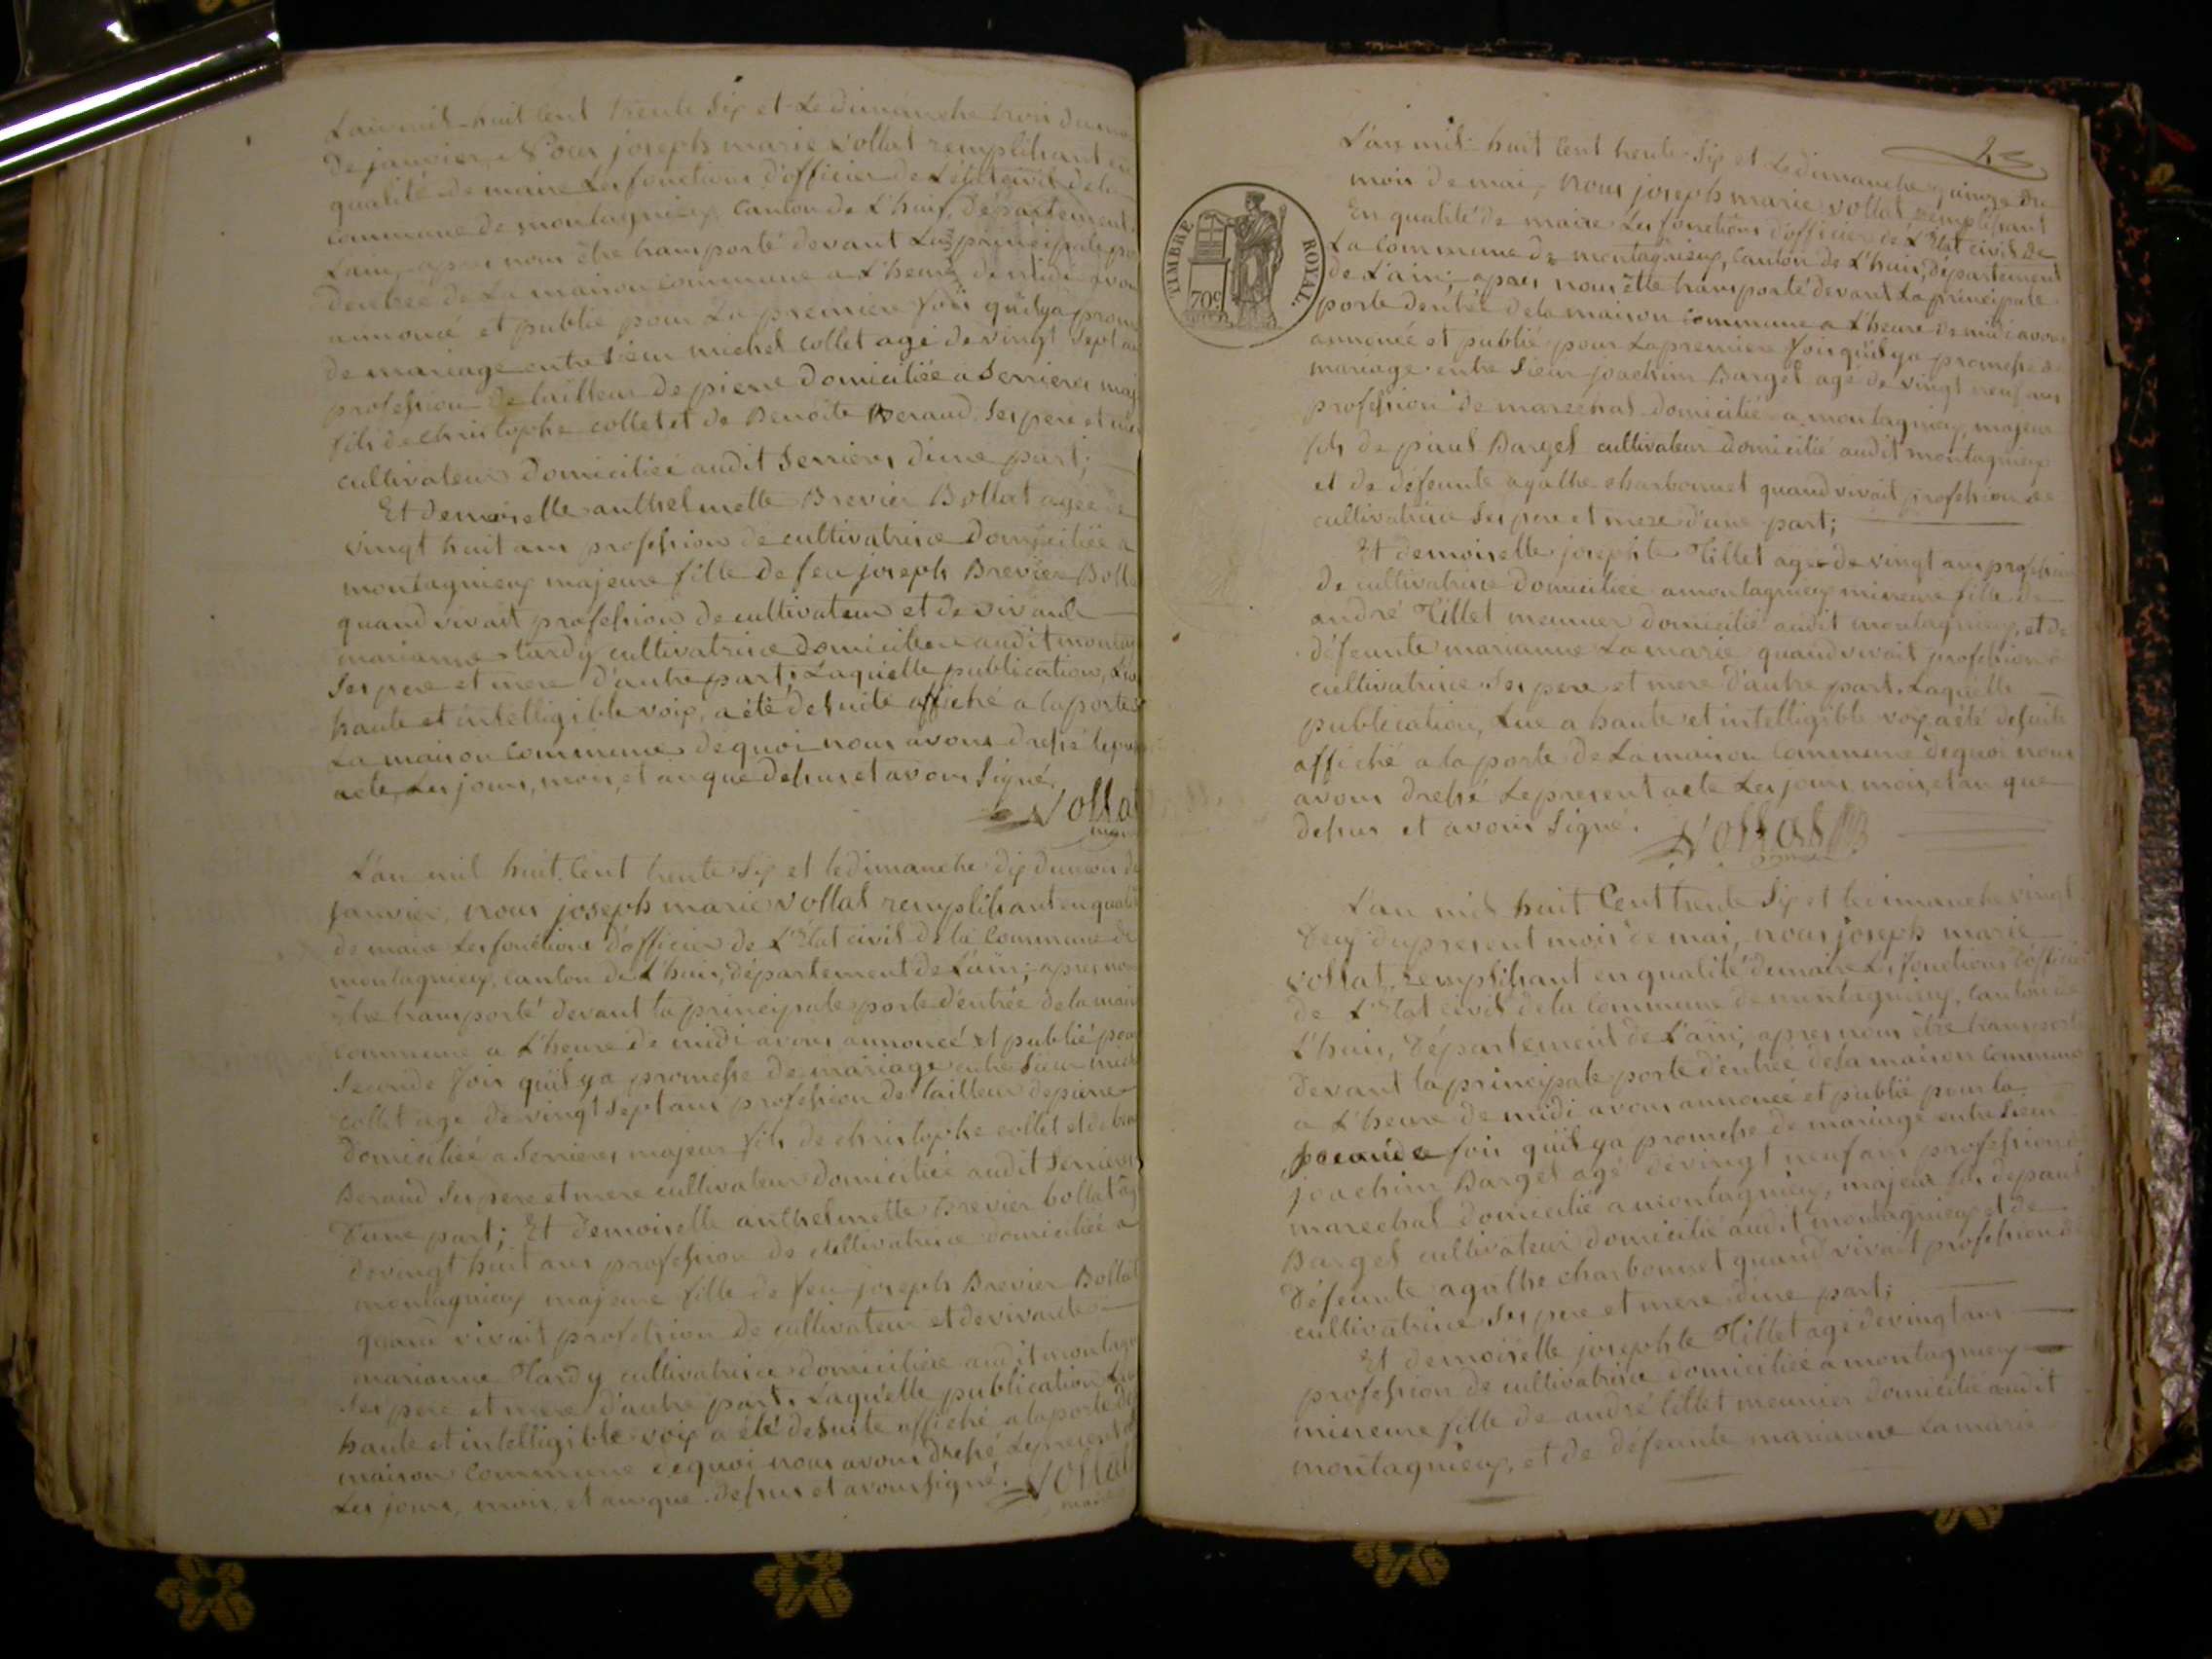 L'an mil huit cent trente six et Le dimanche trois du mois
de janvier, Nous joseph marie vollat remplissant en
qualité de maire Les fonctions d'officier de L'état civil de la
commune de montagnieux canton de L'huis, département de
L'ain, apres nous être transporté devant La principale porte
d'entrée de La maison commune a L'heure de midi avons
annoncé et publié pour La premiere fois quil ya promesse
de mariage entre Sieur michel collet agé de vingt Sept ans
profession de tailleur de pierre Domiciliée a Serrieres maj
fils de christophe collet et de Benoite Beraud Ses pere et mere
cultivateurs Domiciliée audit Serrieres d'une part;
Et demoiselle anthelmette Brevier Bollat agée de
vingt huit ans profession de cultivatrice Domiciliée a
montagnieux majeure fille de feu joseph Brevier Bolla
quand vivait profession de cultivateur et de vivante
marianne tardy cultivatrice domiciliere audit montag
Ses pere et mere d'autre part; Laquelle publication, Lue
haute et intelligible voix, a été desuite affiché a la porte
La maison commune dequoi nous avons dressé le pres
acte, Les jours, mois, et an que dessus et avons Signé.
Vollat
maire
L'an mil huit cent trente Six et le dimanche dix du mois de
janvier, nous joseph marie vollat remplissant en qualité
de maire Les fonctions d'officier de L'Etat civil de la commune de
montagnieux, canton de L'huis, département de L'ain; apres nous
être transporté devant la principale porte d'entrée de la maison
commune a L'heure de midi avons annoncé et publié pour
Seconde fois quil ya promesse de mariage entre Sieur mich
collet agé de vingt Sept ans profession de tailleur de pierre
domiciliée a Serrieres majeur fils de christophe collet et de ben
Beraud Ses pere et mere cultivateur domiciliée audit Serrieres
D'une part; Et demoiselle anthelmette Brevier bollat ag
de vingt huit ans profession de cultivatrice domiciliée a
montagnieux majeure fille de feu joseph Brevier Bollat
quand vivait profession de cultivateur et de vivante
marianne Tardy cultivatrice domiciliere audit montagn
Ses pere et mere d'autre part. Laquelle publication Lue
haute et intelligible voix a été desuite affiché a la porte de
maison commune dequoi nous avons dressé Le present
Les jours, mois, et an que dessus et avons signé.
Vollat
maire
2
TIMBRE ROYAL.
70c
L'an mil huit cent trente Six et Le dimanche quinze du
mois de mai, Nous joseph marie vollat remplissant
En qualité de maire Les fonctions d'officier de L'Etat civil de
La commune de montagnieux, canton de L'huis, département
de L'ain; apres nous être transporté devant La principale
porte d'entrée de la maison commune a L'heure de midi avons
annoncé et publié pour La premiere fois quil ya promesse de
mariage entre Sieur joachim Barget agé de vingt neuf ans
profession de marechal domicilié a montagnieux majeur
fils de paul Barget cultivateur domicilié audit montagnieux
et de défeunte agathe charbonnet quand vivait profession de
cultivatrice Ses pere et mere d'une part;
Et demoiselle josephte Tillet agée de vingt ans profession
de cultivatrice domiciliée a montagnieux mineure fille de
andré Tillet meunier domicilié audit montagnieux, et de
défeunte marianne Lamarie quand vivait profession de
cultivatrice Ses pere et mere d'autre part. Laquelle
publication, Lue a haute et intelligible voix a été desuite
affiché a la porte de La maison commune dequoi nous
avons dressé Le present acte Les jours, mois, et an que
dessus et avons Signé.
Vollat
L'an mil huit Cent trente Six et le dimanche vingt
deux du present mois de mai, nous joseph marie
vollat, remplissant en qualité de maire Les fonctions d'officier
de L'Etat civil de la commune de montagnieux, canton de
L'huis, Département de L'ain; apres nous être transporté
devant la principale porte d'entrée de la maison commune
a L'heure de midi avons annoncé et publié pour la
seconde fois quil ya promesse de mariage entre Sieur
joachim Barget agé de vingt neuf ans profession de
marechal domicilié a montagnieux, majeur fils de paul
Barget cultivateur domicilié audit montagnieux et de
défeunte agathe charbonnet quand vivait profession de
cultivatrice Ses pere et mere d'une part;
Et demoiselle josephte Tillet agé de vingt ans
profession de cultivatrice domiciliée a montagnieux
mineure fille de andré tillet meunier domicilié audit
montagnieux, et de défeunte marianne Lamarie